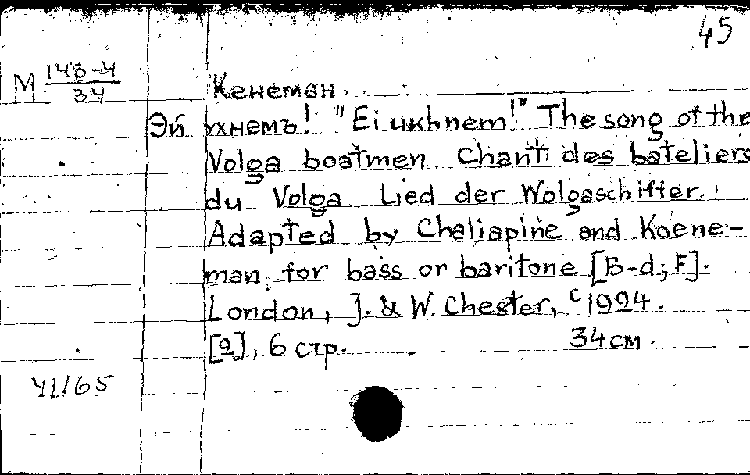 45
М 143-4/34
Кенеман.
Эй ухнемъ! "Ei ukhnem!" The song of the
Volga boatmen Chant des bateliers
du Volga Lied der Wolgaschiffer.
Adapted by Chaliapine and Koene-
man, for bass or baritone [B-d; F].
London, J. & W. Chester, c 1924.
[2], 6 стр. 34 см.
41/65